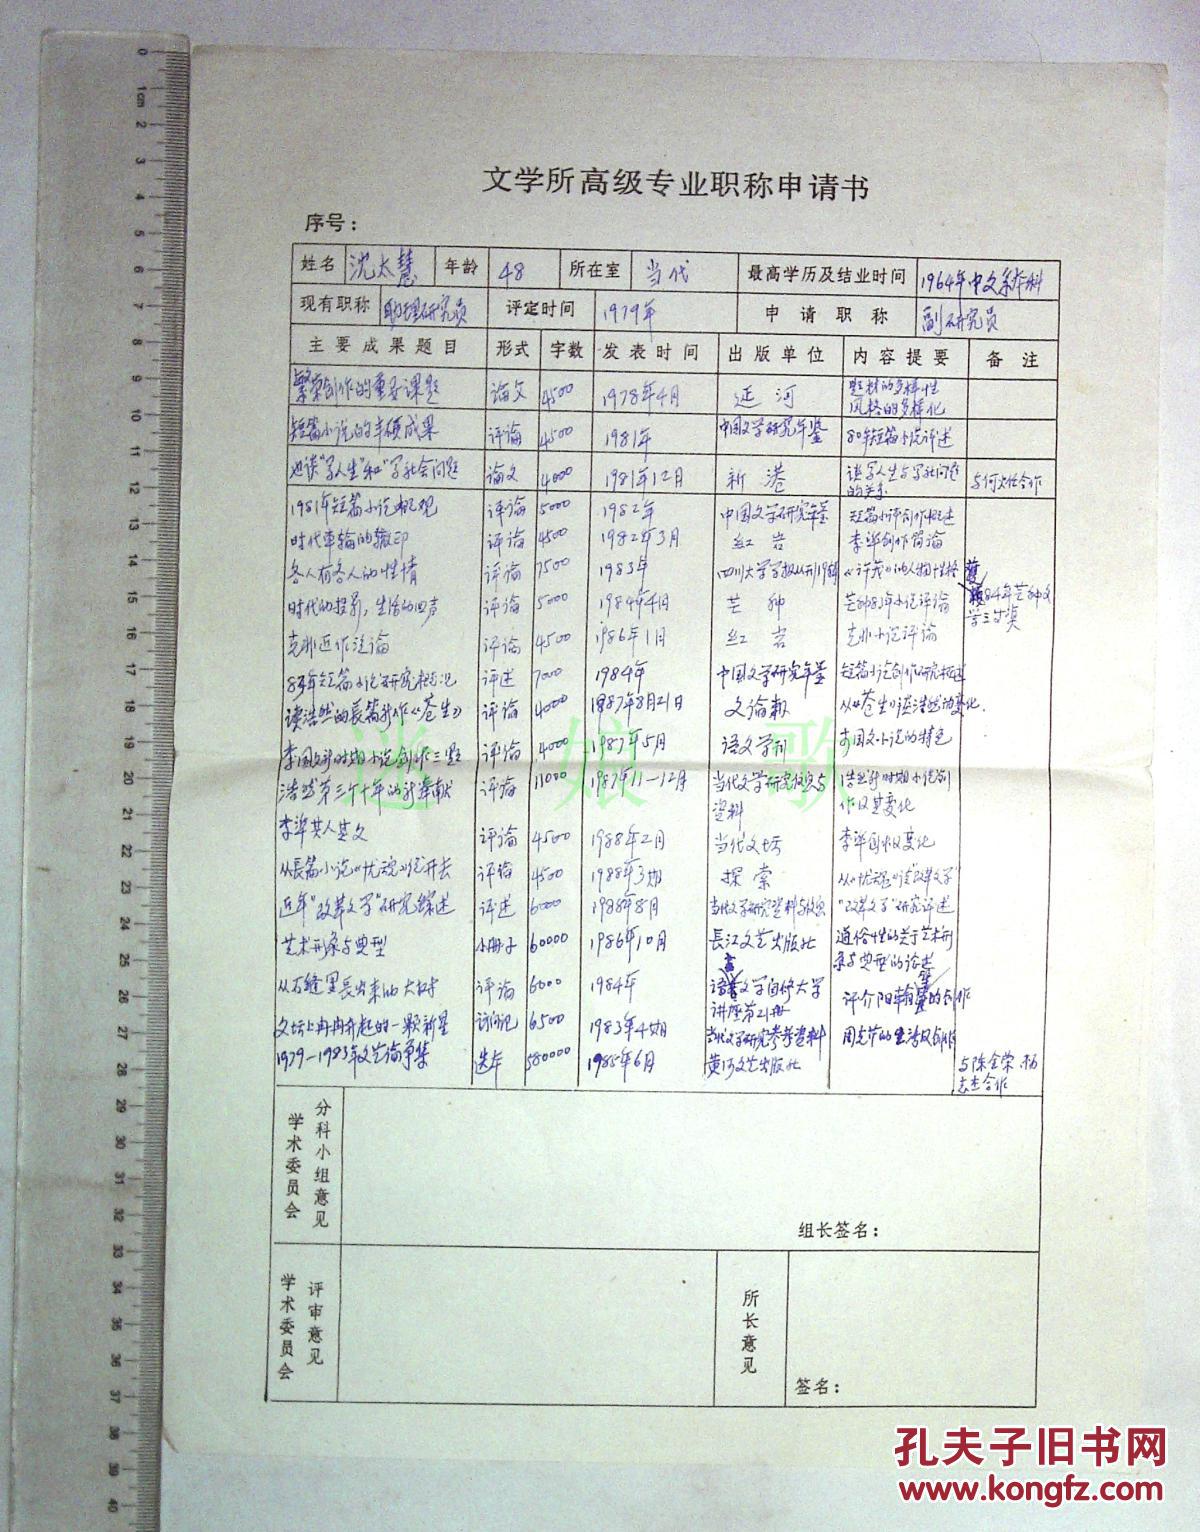 文学所高级专业职称申请书
序号：
姓名 沈太慧 年龄 48 所在室 当代 最高学历及结业时间 1964年中文系本科
现有职称 助理研究员 评定时间 1979年 申请职称 副研究员
主要成果题目 形式 字数 发表时间 出版单位 内容提要 备注
繁荣创作的重要课题 论文 4500 1978年4月 延河 题材的多样性
风格的多样化
短篇小说的丰硕成果 评论 4500 1981年 中国文学研究年鉴 80年短篇小说评述
也谈“写人生”和“写社会问题 论文 4000 1981年12月 新港 谈写人生与写社问题
的关系 与何火任合作
1981年短篇小说概观 评论 5000 1982年 中国文学研究年鉴 短篇小说创作概述
时代车轮的辙印 评论 4500 1982年3月 红岩 李准创作简论
各人有各人的性情 评论 7500 1983年 四川大学学报丛刊19辑 《许茂》的人物性格
时代的投影，生活的回声 评论 5000 1984年4月 芒种 芒种83年小说评论 获84年芒种文
学三等奖
克非近作漫论 评论 4500 1986年1月 红岩 克非小说评论
83年短篇小说研究概况 评述 7000 1984年 中国文学研究年鉴 短篇小说创作研究概述
读浩然的長篇新作《苍生》 评论 4000 1987年8月21日 文论报 从《苍生》谈浩然的变化.
李国文新时期小说创作三题 评论 4000 1987年5月 语文学刊 李国文小说的特色
浩然第三个十年的新奉献 评论 11000 1987年11－12月 当代文学研究信息与
资料 浩然新时期小说创
作及其变化
李准其人其文 评论 4500 1988年2月 当代文坛 李准创作及变化
从長篇小说《忧魂》说开去 评论 4500 1988年3期 探索 从《忧魂》谈“改革文学”
近年“改革文学”研究综述 评述 6000 1988年8月 当代文学研究资料与信息 “改革文学”研究评述
艺术形象与典型 小册子 60000 1986年10月 長江文艺出版社 通俗性的关于艺术形
象与典型的论述
从石缝里長出来的大树 评论 6000 1984年 语言文学自修大学
讲座第21册 评介阳翰笙的创作
文坛上冉冉升起的一颗新星 访问记 6500 1983年4期 当代文学研究参考资料 周克芹的生活及创作
1979－1983年文艺论争集 选本 580000 1985年6月 黄河文艺出版社 与陈全荣、杨
志杰合作
学术委员会 分科小组意见
组长签名：
学术委员会 评审意见 所长意见
签名：
迷娘歌
孔夫子旧书网
www.kongfz.com